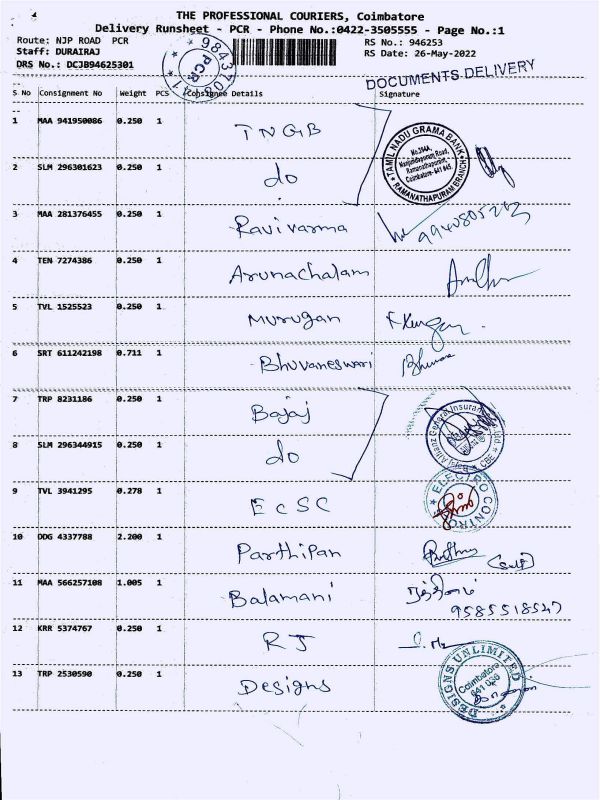 THE PROFESSIONAL COURIERS, Coimbatore
Delivery Runsheet - PCR - Phone No.:0422-3505555 - Page No.:1
Route: NJP ROAD PCR
RS No.: 946253
Staff: DURAIRAJ
RS Date: 26-May-2022
DRS No.: DCJB94625301
PCR
DOCUMENTS DELIVERY
S No Consignment No Weight PCS Consignee Details Signature
1 MAA 941950086 0.250 1 TNGB
TAMIL NADU GRAMA BANK
No.394A,
Nanjundapuram Road,
Ramanathapuram,
Coimbatore- 641 045.
RAMANATHAPURAM BRANCH
2 SLM 296301623 0.250 1 do
3 MAA 281376455 0.250 1 Ravi varma
4 TEN 7274386 0.250 1 Arunachalam
5 TVL 1525523 0.250 1 Murugan
6 SRT 611242198 0.711 1 Bhuvaneswari
7 TRP 8231186 0.250 1 Bajaj
Bajaj Allianz General Insurance Co. Ltd. CBE
8 SLM 296344915 0.250 1 do
9 TVL 3941295 0.278 1 ECSC
ELECTRO CONTROL
10 ODG 4337788 2.200 1 Parthipan
11 MAA 566257108 1.005 1 Balamani
9585518527
12 KRR 5374767 0.250 1 RJ
13 TRP 2530590 0.250 1 Designs
DESIGNS UNLIMITED
Coimbatore